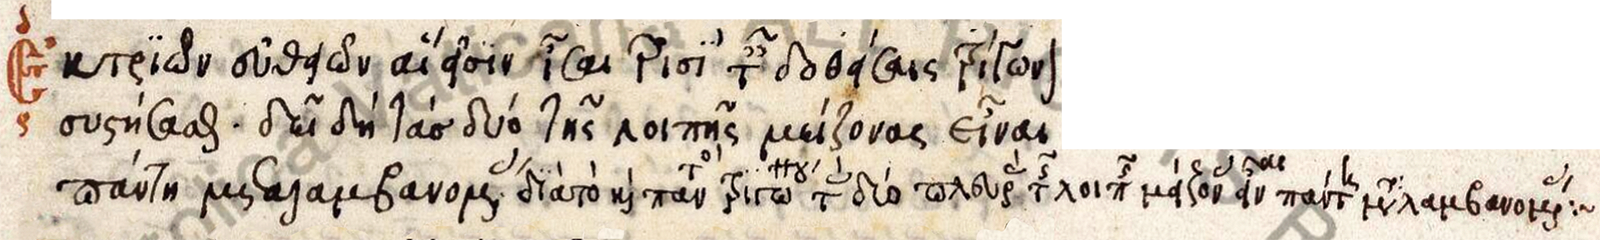 Ἐκ τριῶν εὐθειῶν αἵ εἰσιν ἴσαι τρισὶ ταῖς δοθείσαις τρίγωνον
συστήσασθαι · δεῖ δὴ τὰς δύο τῆς λοιπῆς μείζονας εἶναι
πάντῃ μεταλαμβανομένας διὰ τὸ καὶ παντὸς τριγώνου τὰς δύο πλευρὰς τῆς λοιπῆς μείζονας εἶναι πάντῃ μεταλαμβανομένας :~